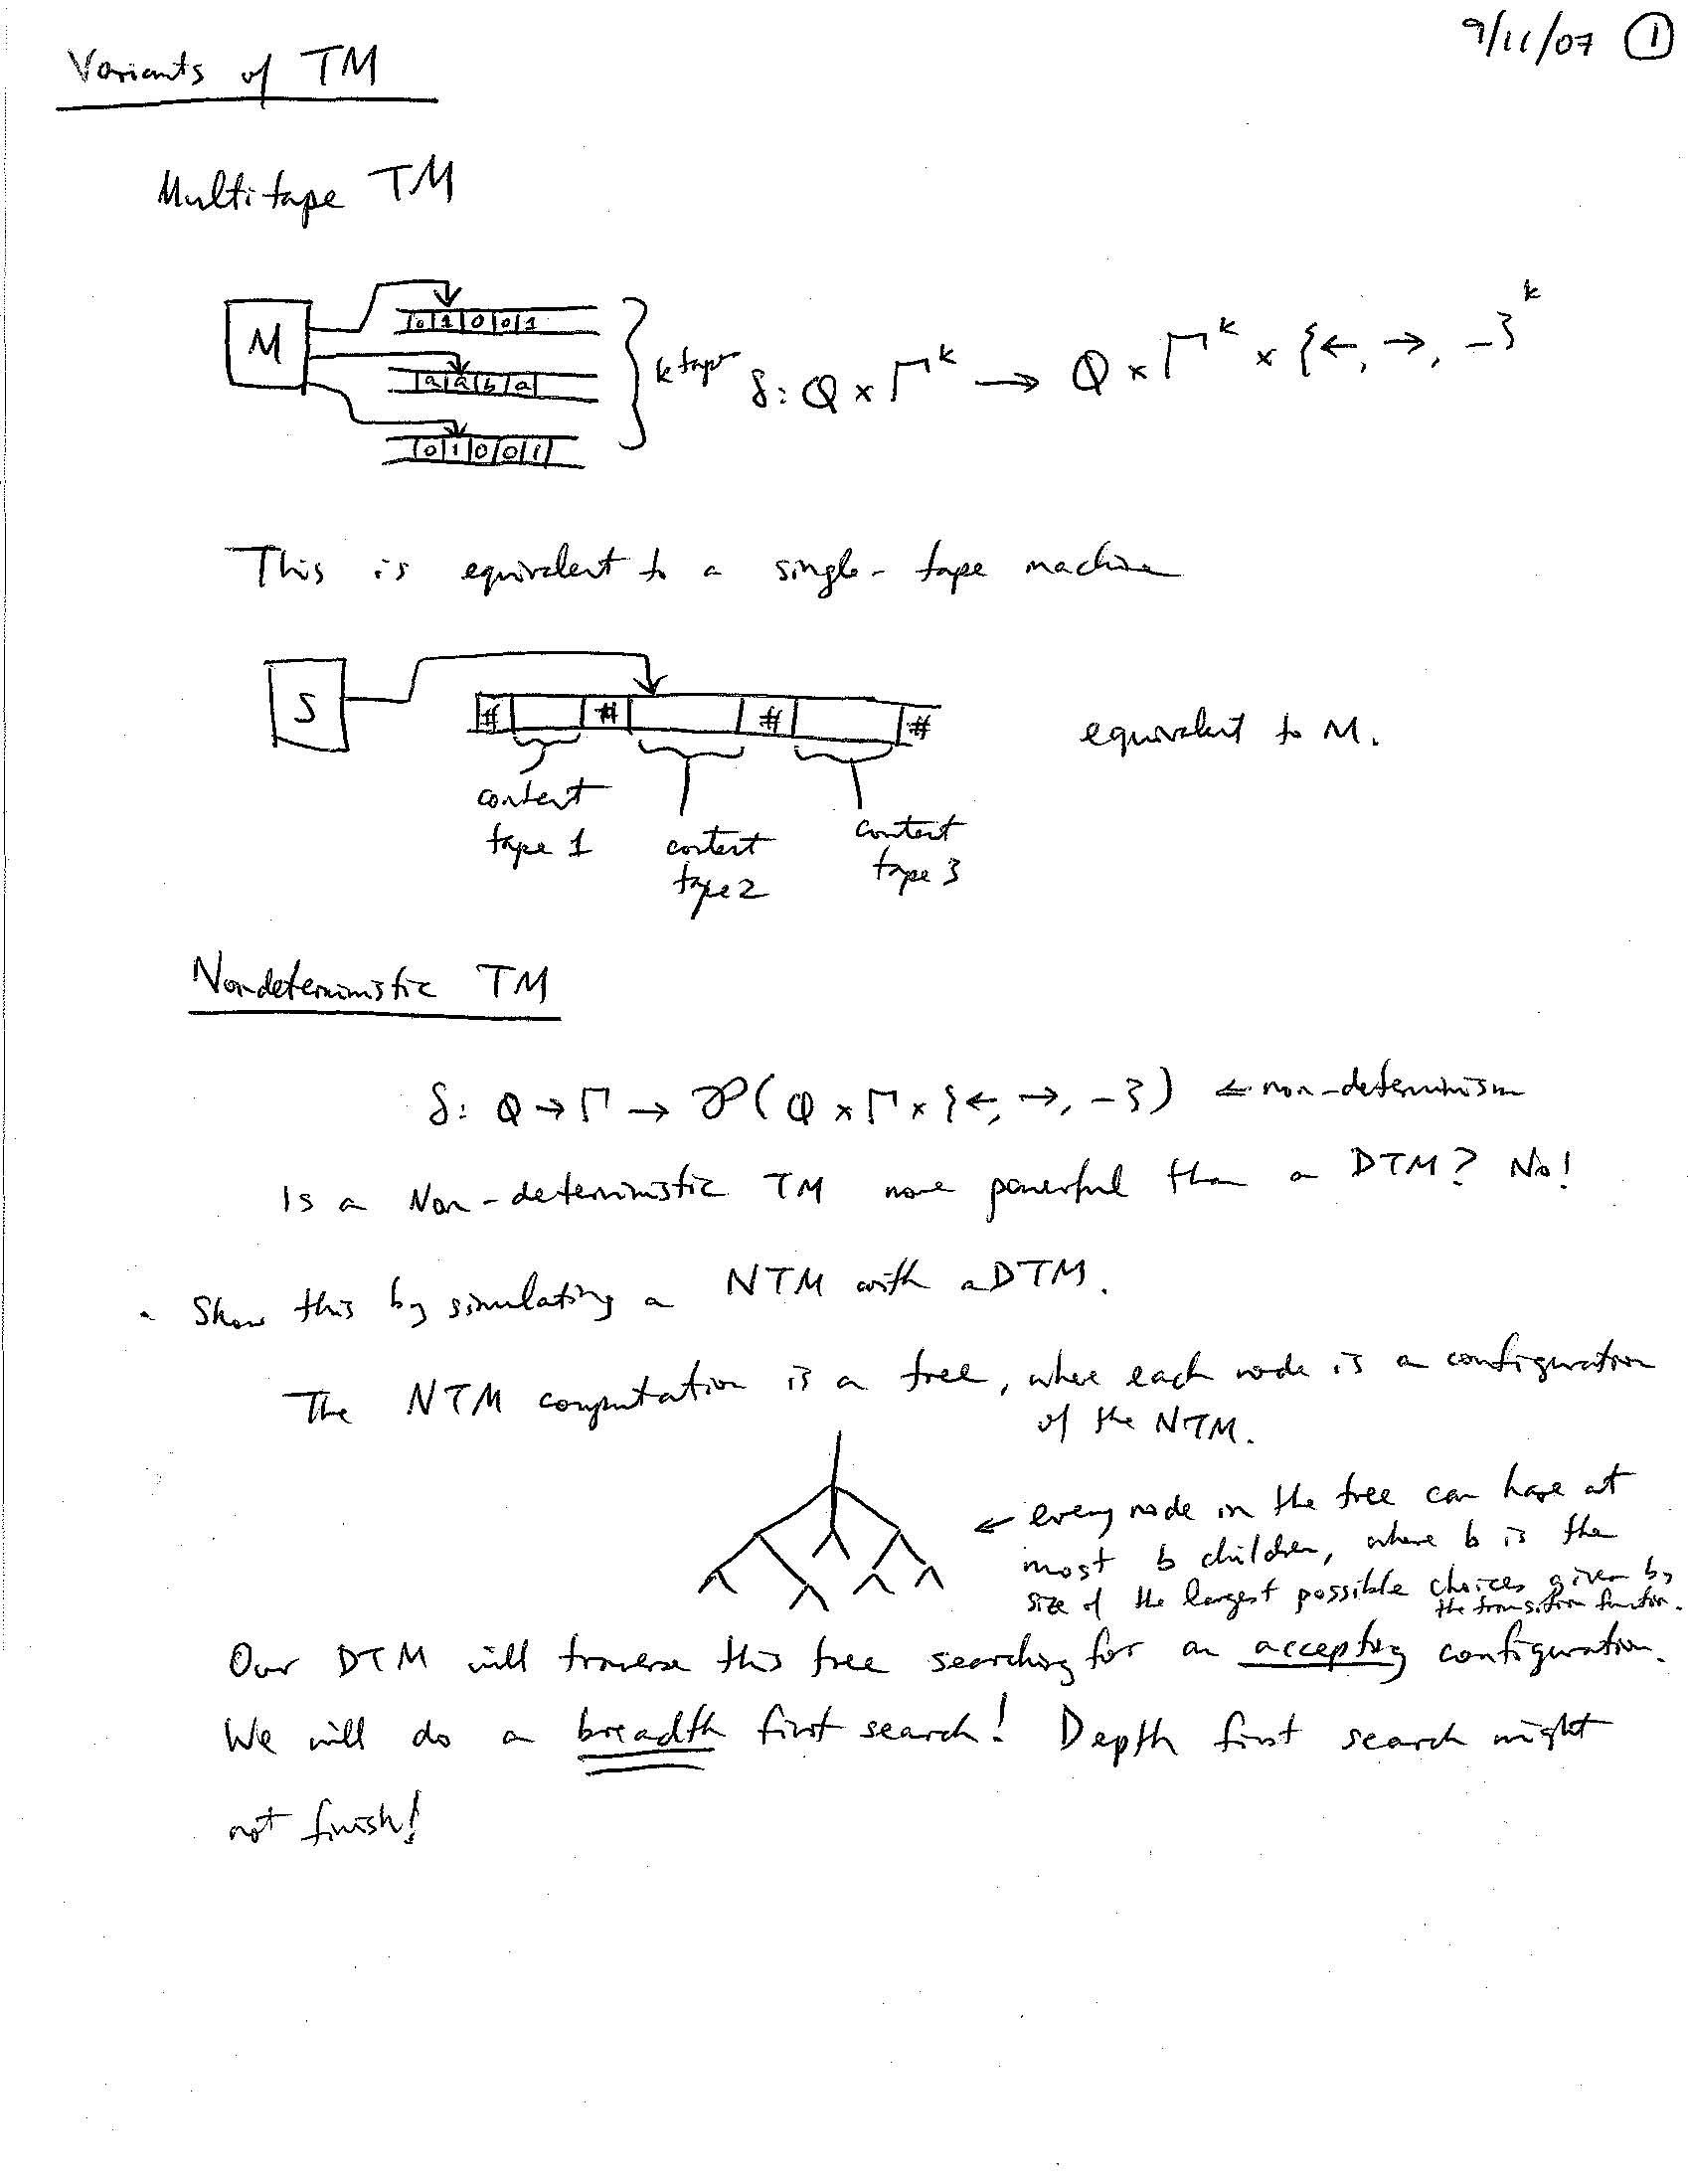 9/11/07 ①
Variants of TM
Multitape TM
M
0 1 0 0 1
a a b a
0 1 0 0 1
k tapes
δ: Q × Γ^k → Q × Γ^k × {←, →, -}^k
This is equivalent to a single-tape machine
S
# # # #
equivalent to M.
content tape 1
content tape 2
content tape 3
Nondeterministic TM
δ: Q → Γ → P(Q × Γ × {←, →, -}) ← non-determinism
Is a Non-deterministic TM more powerful than a DTM? No!
Show this by simulating a NTM with a DTM.
The NTM computation is a tree, where each node is a configuration
of the NTM.
← every node in the tree can have at
most b children, where b is the
size of the largest possible choices given by
the transition function.
Our DTM will traverse this tree searching for an accepting configuration.
We will do a breadth first search! Depth first search might
not finish!